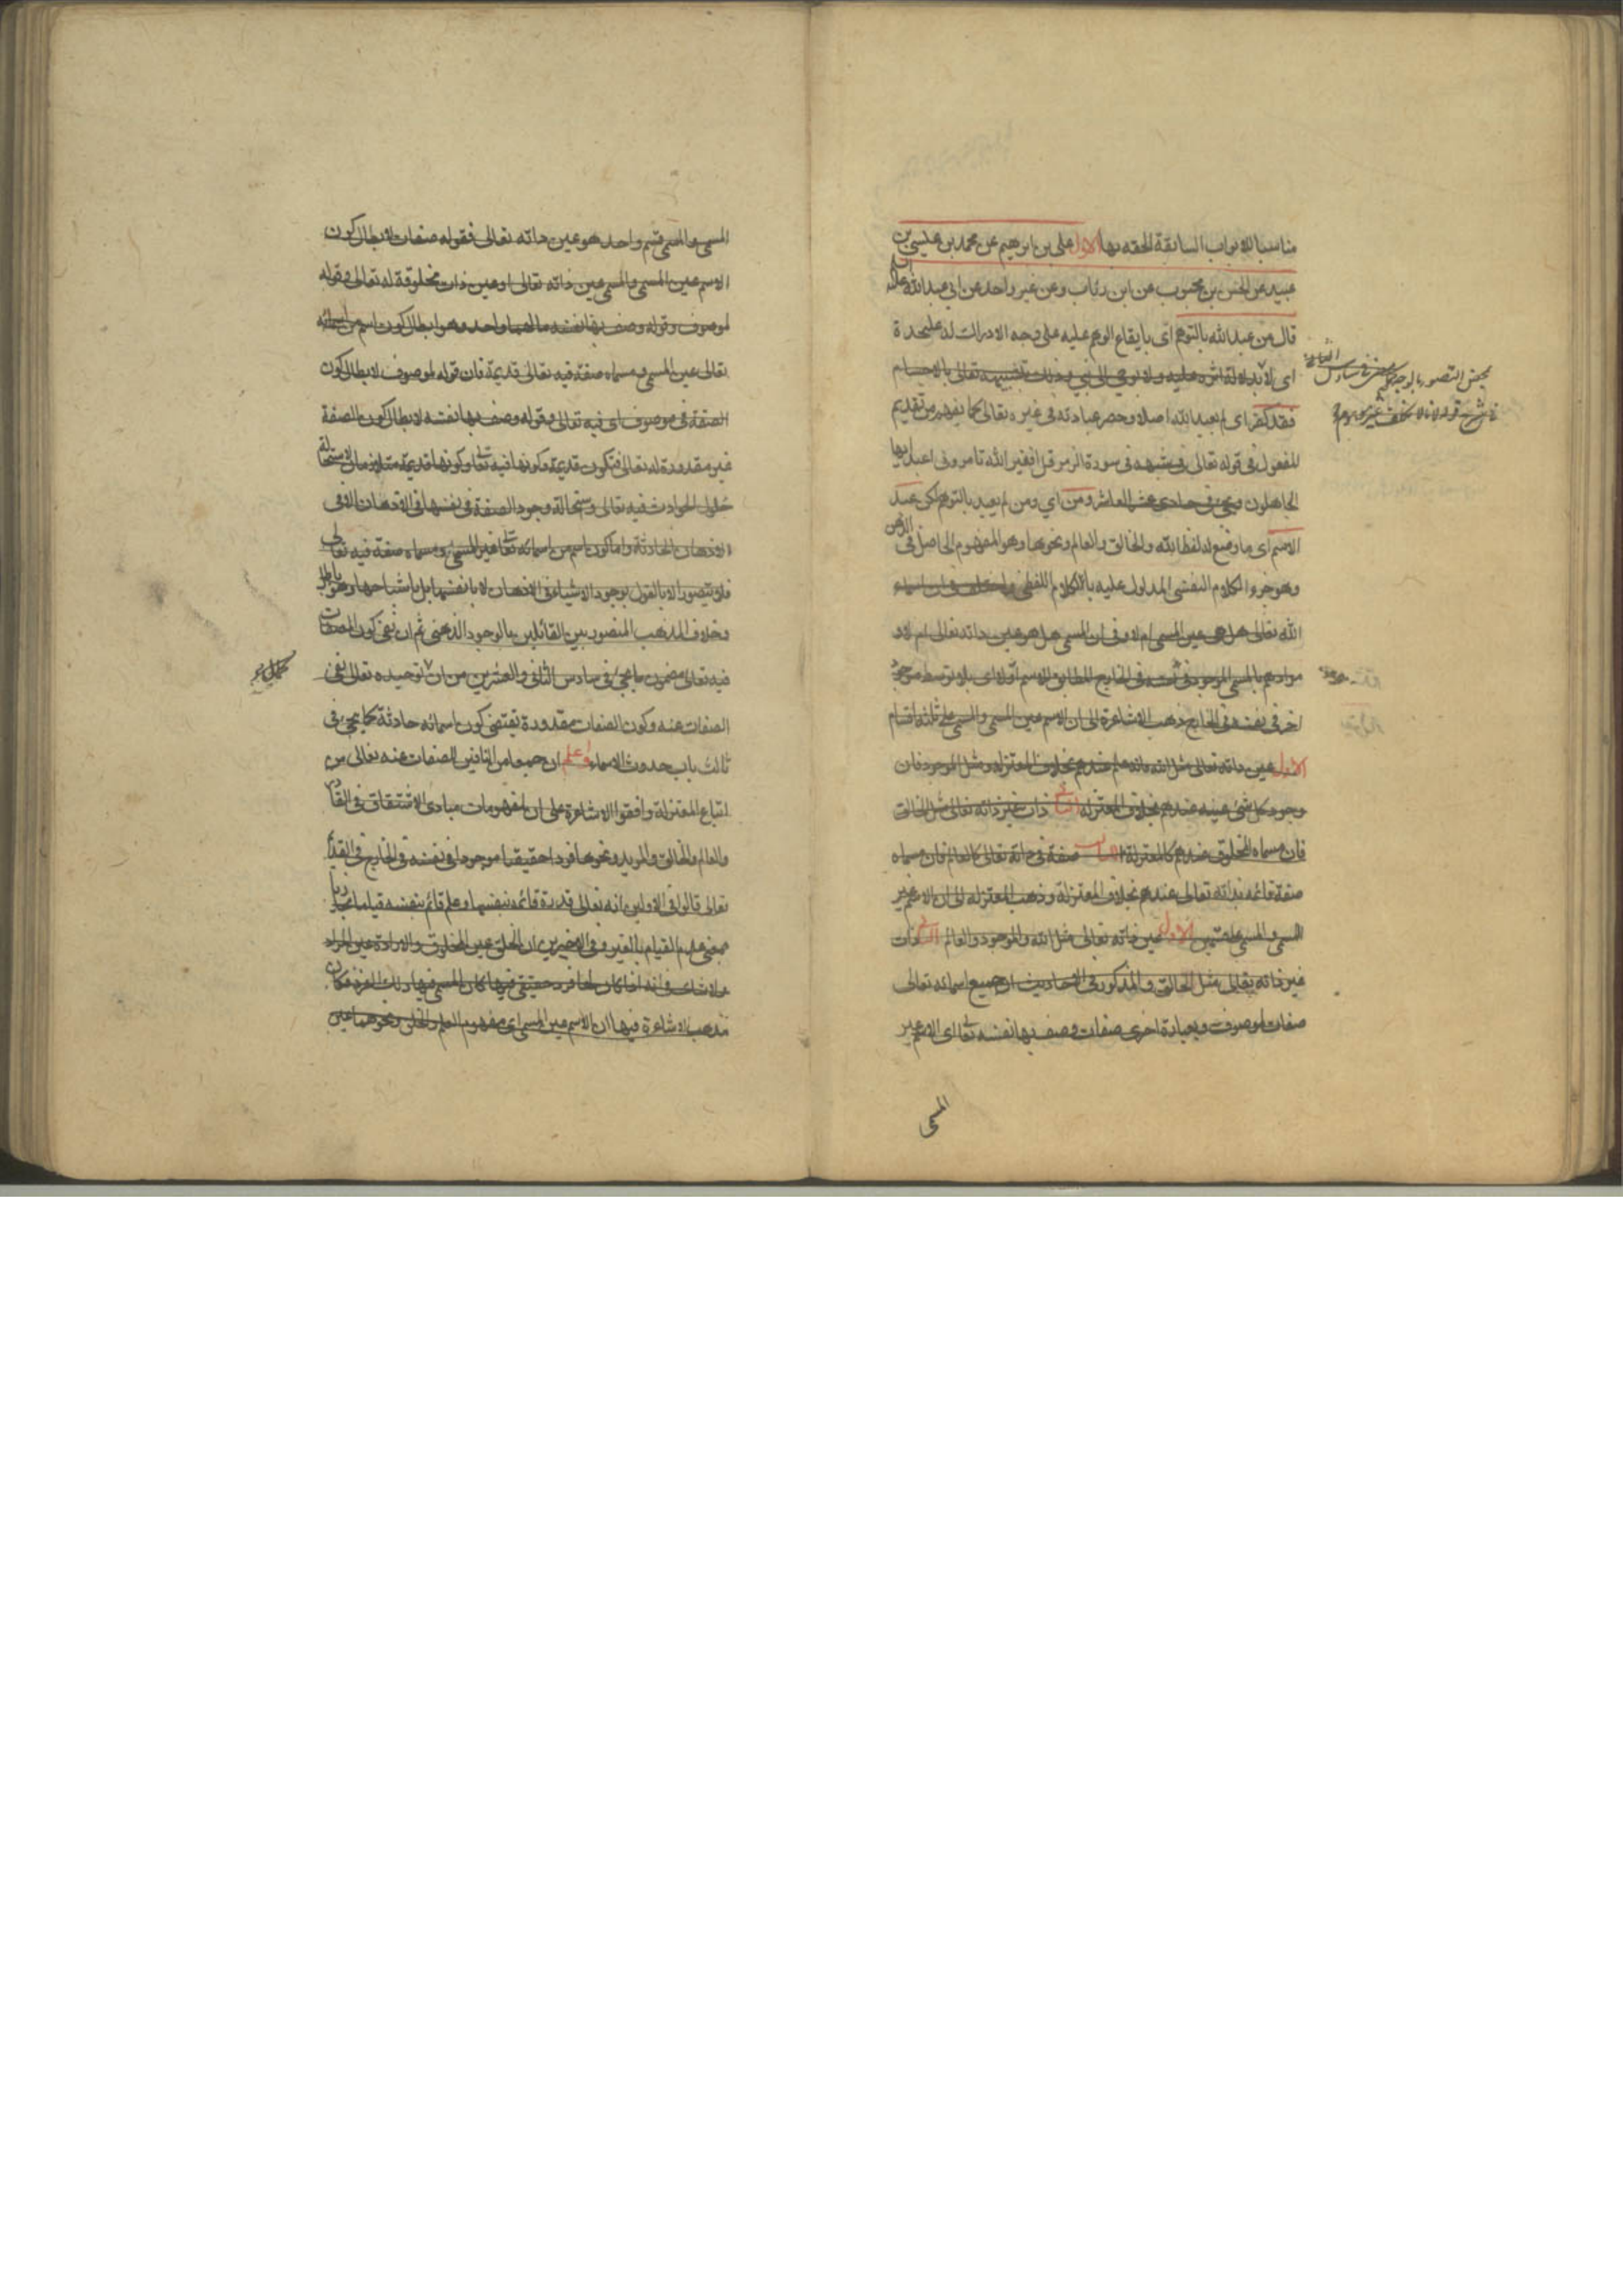 مناسبا للابواب السابقة الحقه بها الاول علی بن ابرهیم عن محمد بن عیسی بن
عبید عن الحسن بن محبوب عن ابن رئاب وعن غیر واحد عن ابی عبدالله علیه السلم
قال من عبدالله بالتوهم ای بایقاع الوهم علیه علی وجه الادراک له علیحدة
ای بلا دلالة اثره علیه ولا بوحی الی نبی وذلک بتشبیهه تعالی بالاجسام
فقد کفر ای لم یعبد الله اصلا وحصر عبادته فی غیره تعالی کما یفهم من تقدیم
المفعول فی قوله تعالی فی سورة الزمر قل افغیر الله تامرونی اعبد ایها
الجاهلون ویجئ فی حادی عشر العاشر ومن ای ومن لم یعبد بالتوهم لکن عبد
الاسم ای ما وضع له لفظ الله والخالق والعالم ونحوها وهو المفهوم الحاصل فی الذهن
وهو جزء الکلام النفسی المدلول علیه بالکلام اللفظی واختلف فی ان اسماء
الله تعالی هل هی عین المسمی ام لا وفی ان المسمی هل هو عین ذاته تعالی ام لا و
مرادهم بالمسمی الموجود فی نفسه فی الخارج المطابق للاسم اولا ای بلا توسط موجود
اخر فی نفسه فی الخارج ذهب الاشاعرة الی ان الاسم عین المسمی والمسمی علی ثلثة اقسام
الاول عین ذاته تعالی مثل الله فانه علم عندهم بخلاف المعتزلة ومثل الموجود فان
وجود کل شئ عینه عندهم بخلاف المعتزلة الثانی ذات غیر ذاته تعالی مثل الخالق
فان مسماه المخلوق عندهم کالمعتزلة الثالث صفة فی ذاته تعالی کالعالم فان مسماه
صفة قائمة بذاته تعالی عندهم بخلاف المعتزلة وذهب المعتزلة الی ان الاسم غیر
المسمی والمسمی علی قسمین الاول عین ذاته تعالی مثل الله والموجود والعالم الثانی ذات
غیر ذاته تعالی مثل الخالق والمذکور فی الاحادیث ان جمیع اسمائه تعالی
صفات لموصوف وبعبارة اخری صفات وصف بها نفسه تعالی ای الاسم غیر
المسمی
المسمی والمسمی قسم واحد هو عین ذاته تعالی فقوله صفات لابطال کون
الاسم عین المسمی والمسمی عین ذاته تعالی او عین ذات مخلوقة له تعالی وقوله
لموصوف وقوله وصف بها نفسه مالهما واحد وهو ابطال کون اسم من اسمائه
تعالی عین المسمی ومسماه صفة فیه تعالی قدیمة فان قوله لموصوف لابطال کون
الصفة فی موصوف ای فیه تعالی وقوله وصف بها نفسه لابطال کون الصفة
غیر مقدورة له تعالی فتکون قدیمة وکونها فیه تعالی وکونها قدیمة متلازمان لاستحالة
حلول الحوادث فیه تعالی واستحالة وجود الصفة فی نفسها فی الاذهان الا فی
الاذهان الحادثة واما کون اسم من اسمائه تعالی غیر المسمی ومسماه صفة فیه تعالی
فلا یتصور الا بالقول بوجود الاشیاء فی الاذهان لا بانفسها بل باشباحها وهو باطل
وخلاف المذهب المنصور بین القائلین بالوجود الذهنی ثم ان نفی کون الصفات
فیه تعالی مضمون ما یجئ فی سادس الثانی والعشرین من ان توحیده تعالی نفی
الصفات عنه وکون الصفات مقدورة یقتضی کون اسمائه حادثة کما یجئ فی
ثالث باب حدوث الاسماء واعلم ان جمعا من النافین للصفات عنه تعالی من
اتباع المعتزلة وافقوا الاشاعرة علی ان لمفهومات مبادی الاشتقاق فی القادر
والعالم والخالق والمرید ونحوها فردا حقیقیا موجودا فی نفسه فی الخارج
تعالی قالوا فی الاولین انه تعالی قدرة قائمة بنفسها وعلم قائم بنفسه قیاما مجازیا
بمعنی عدم القیام بالغیر وفی الاخیرین ان الخلق عین المخلوق والارادة عین المراد
ولا شک فی انه اذا کان لها فرد حقیقی فیها کان المسمی فیها ذلک الفرد فکان
مذهب الاشاعرة فیها ان الاسم عین المسمی ای مفهوم العلم والخلق ونحوهما عین